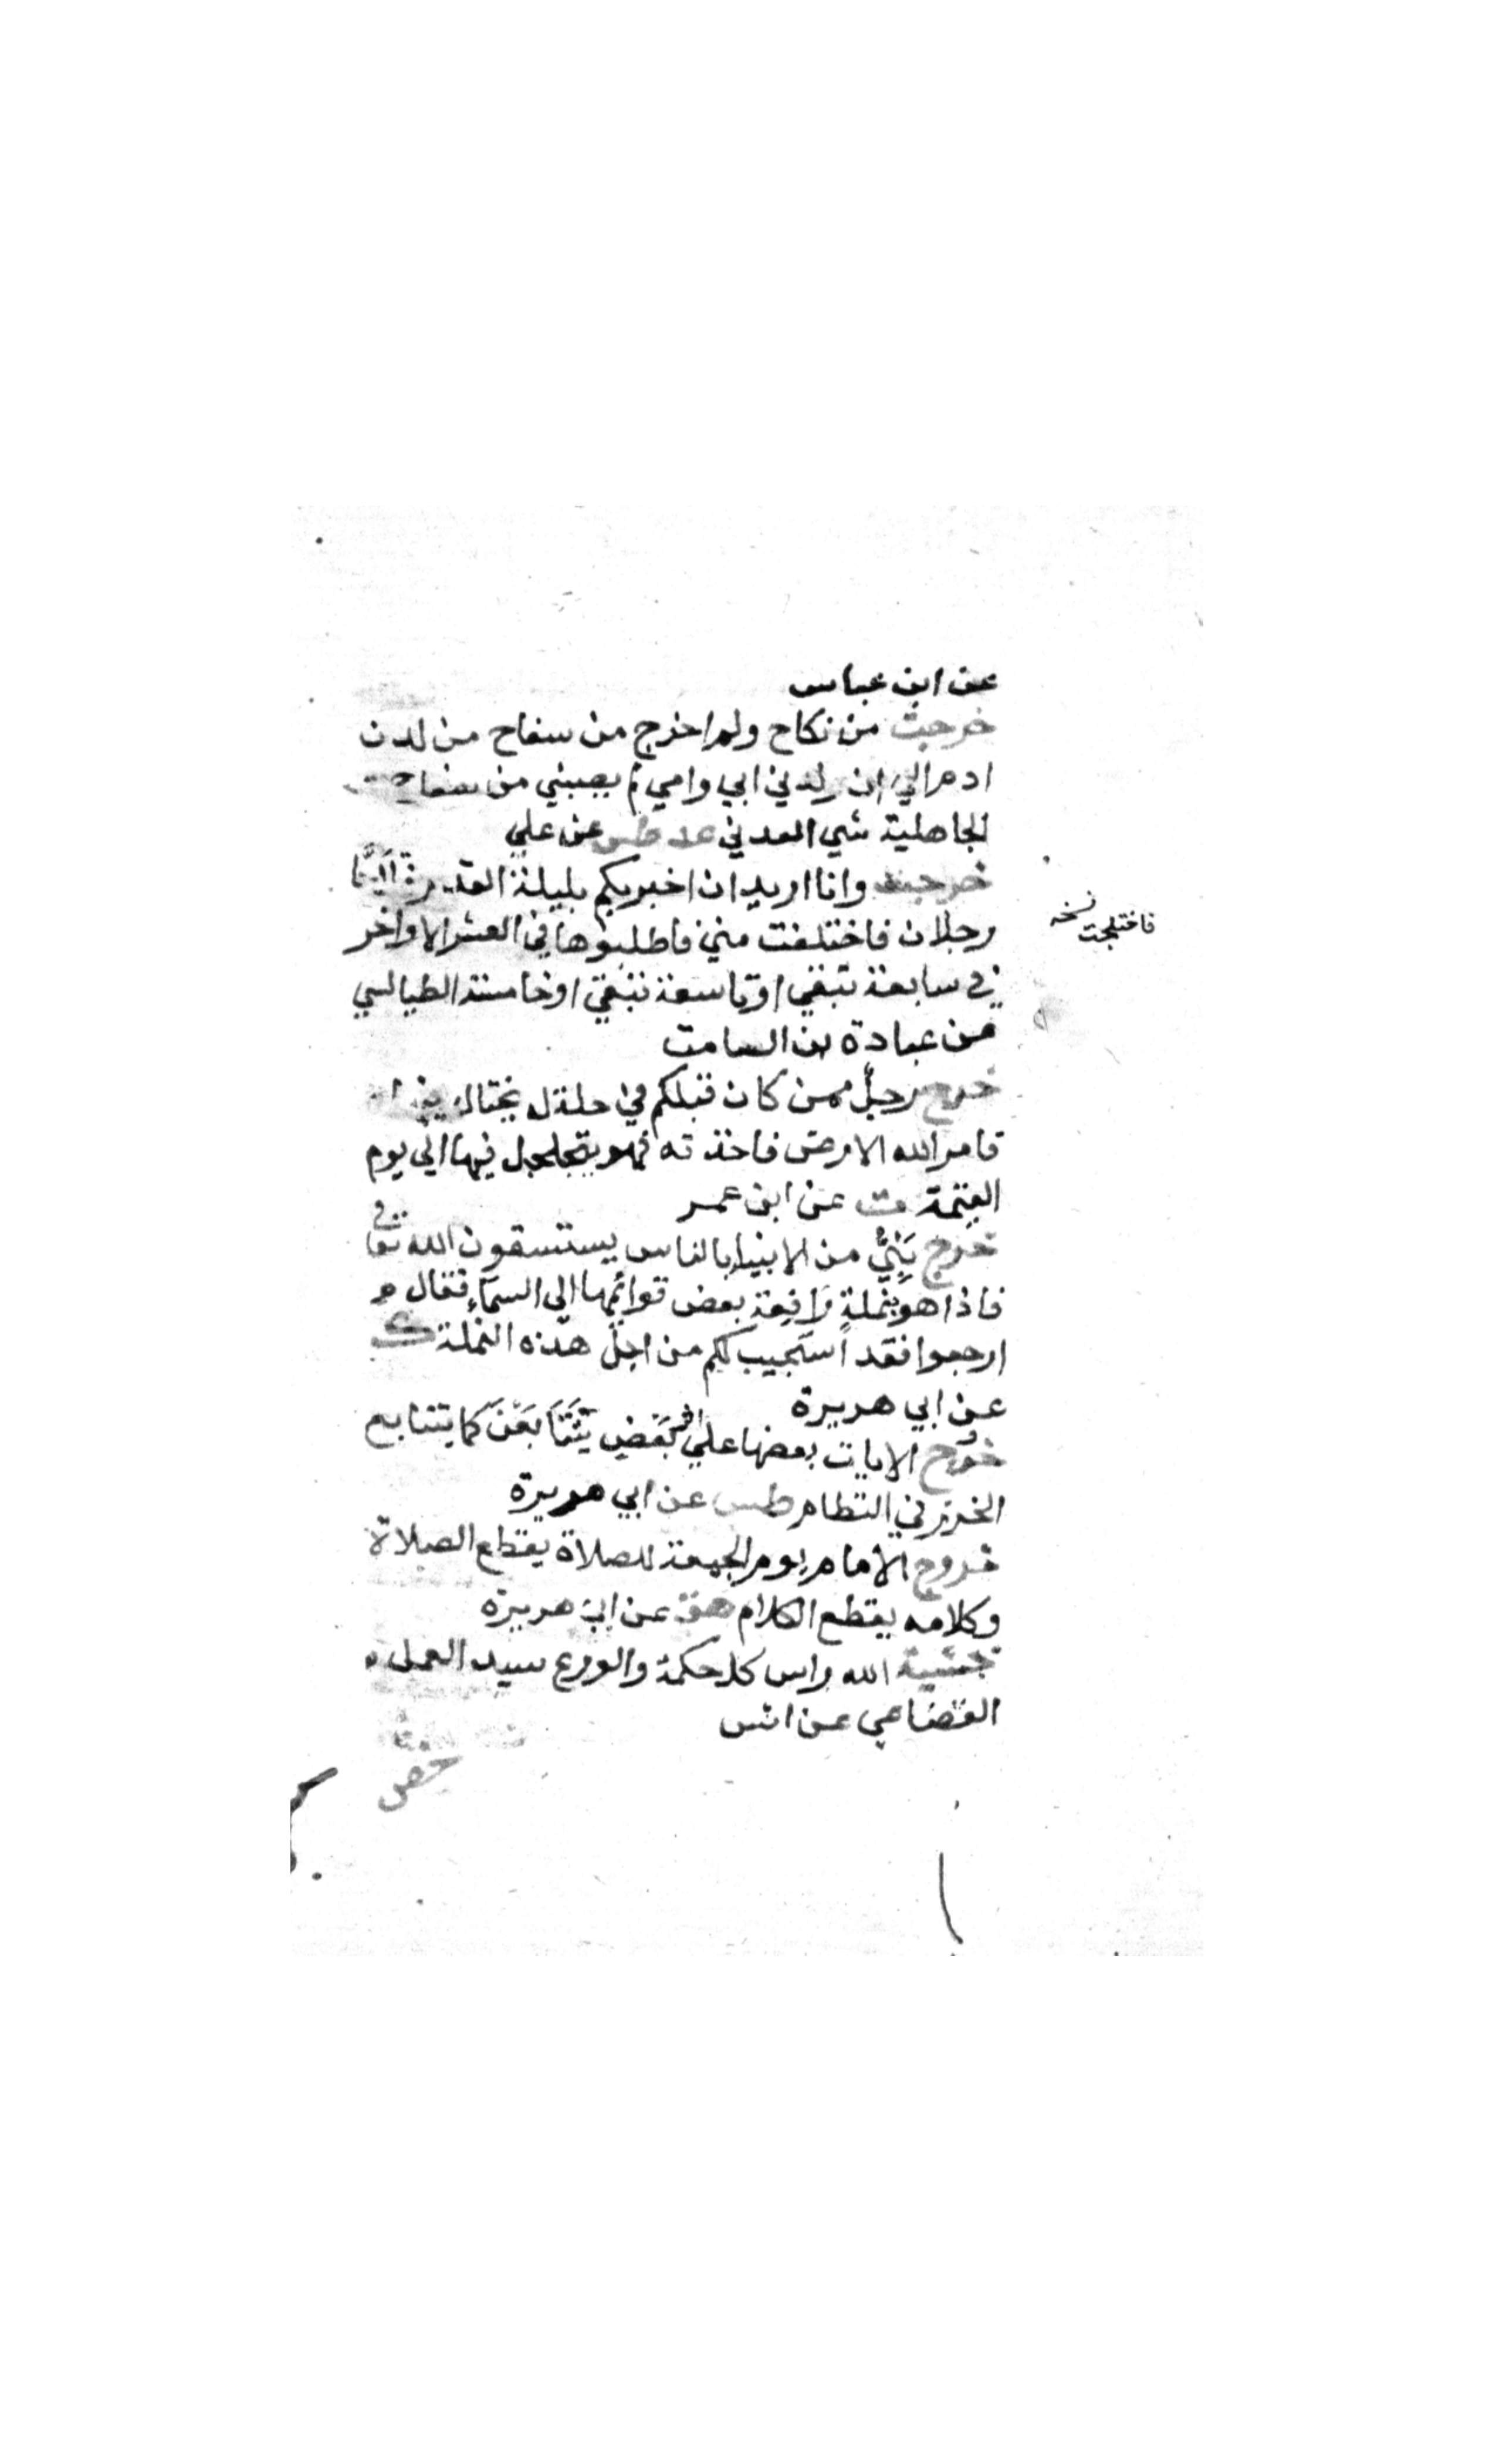 عن ابن عباس
خرجت من نكاح ولم اخرج من سفاح من لدن
ادم الي ان ولدني ابي وامي لم يصبني من سفاح
الجاهلية شي العدني عد طس عن علي
خرجت وانا اريد ان اخبركم بليلة القدر فتلاحا
رجلان فاختلفت مني فاطلبوها في العشر الاواخر
فاختلجت نسخه
في سابعة تبقي او تاسعة تبقي او خامسة الطيالسي
عن عبادة بن الصامت
خرج رجل ممن كان قبلكم في حلة له يختال فيها
فامر الله الارض فاخذته فهو يتجلجل فيها الي يوم
القيمة ت عن ابن عمر
خرج نبي من الانبياء بالناس يستسقون الله تعا
فاذا هو بنملة رافعة بعض قوائمها الى السماء فقال
ارجعوا فقد استجيب لكم من اجل هذه النملة ك
عن ابي هريرة
خروج الايات بعضها علي اثر بعض يتتابعن كما يتتابع
الخرز في النظام طس عن ابي هريرة
خروج الامام يوم الجمعة للصلاة يقطع الصلاة
وكلامه يقطع الكلام هق عن ابي هريرة
خشية الله راس كل حكمة والورع سيد العمل
القضاعي عن انس
خفض